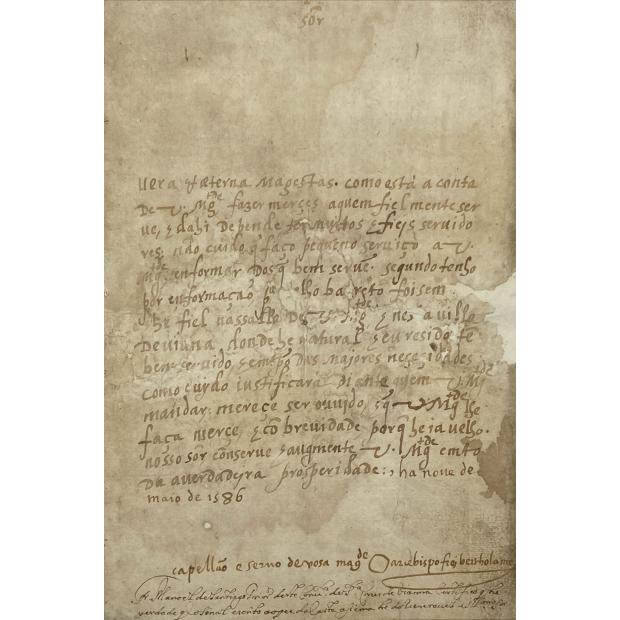 Sõr
uera & æterna Magestas. como està a conta
De V. Mg.de fazer merces aquem fielmente ser
ue, & dahi Depende ter muitos & fieis seruido
res; não cuido q faço pequeno seruiço a V.
Mg.de enformar Dos q bem serue. segundo tenho
por enformação, ja lho ba reto foi sem
fiel uassallo De V. Mg.de, & ne a uilla
De uiana donde he natural, & eu resido te
bem seruido, & em tpo das maiores necesidades
como cuido iustificarà Diante quem V. Mg.de
mandar: merece ser ouuido, & q V. Mg.de lhe
faça merce, & cõ breuidade porq he ia uelho.
nosso sõr conserue & augmente V. Mg.de em to
Da auerdadeira prosperidade; ha noue de
maio de 1586
capellão e seruo de vosa mag.de O arcebispo frei bertholame
fr Manoel de
verdade q o sinal escrito ao pe da carta